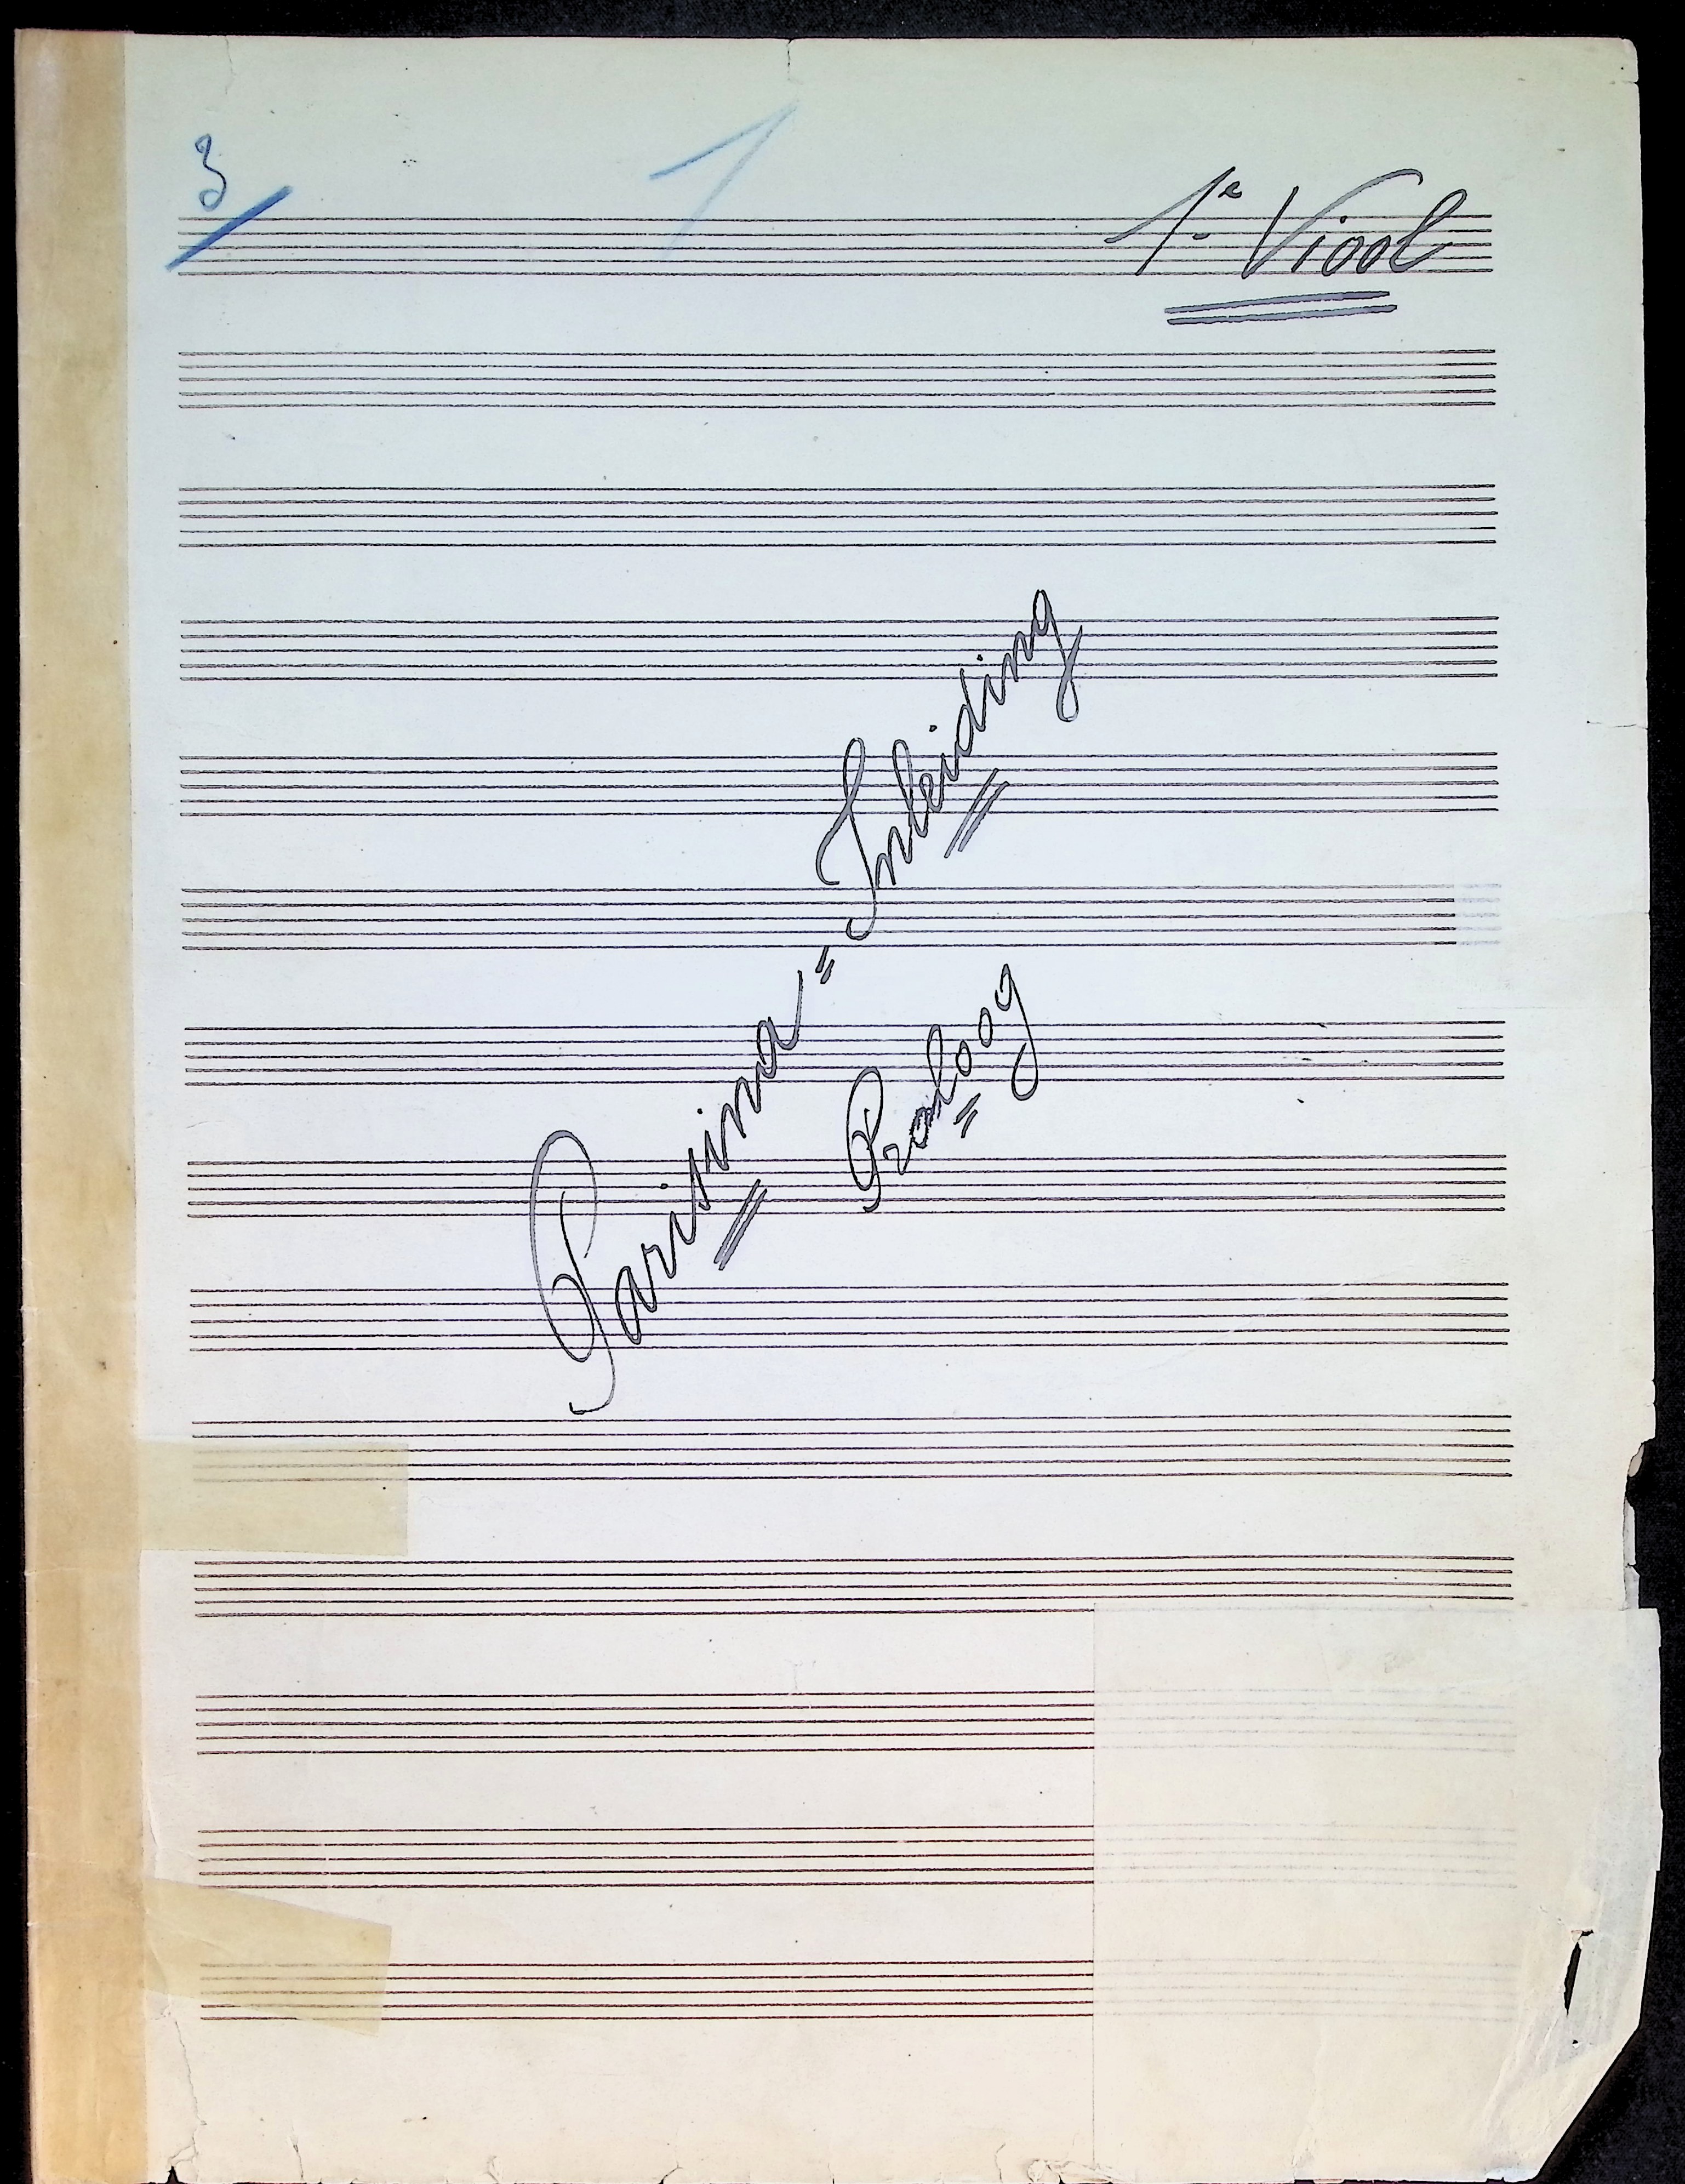 3
1
1e Viool
Parisina = Inleiding
Proloog